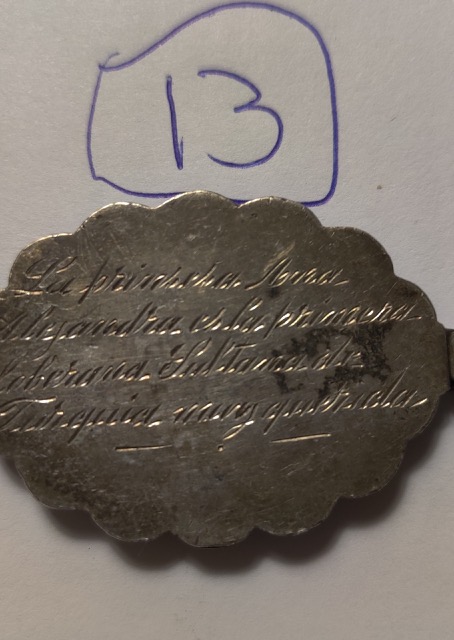 13
La prinsesa Rosa
Alejandra es la primera
Soberana Sultana de
Turquia muy querida